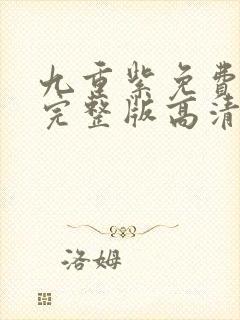 九重紫免费
完整版高清
洛姆